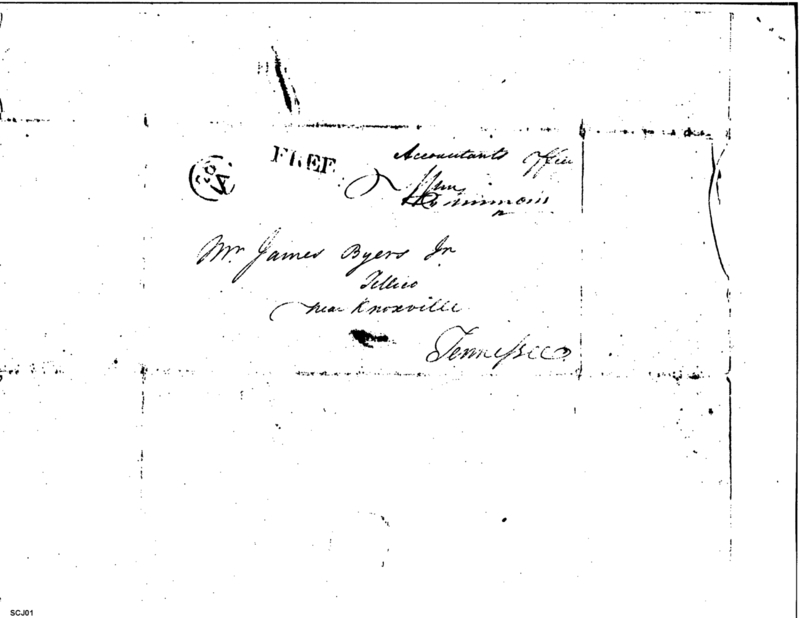 FREE
Accountants Office
Wm
Simmons
Mr. James Byers Jr
Tellico
near Knoxville
Tennessee
SCJ01